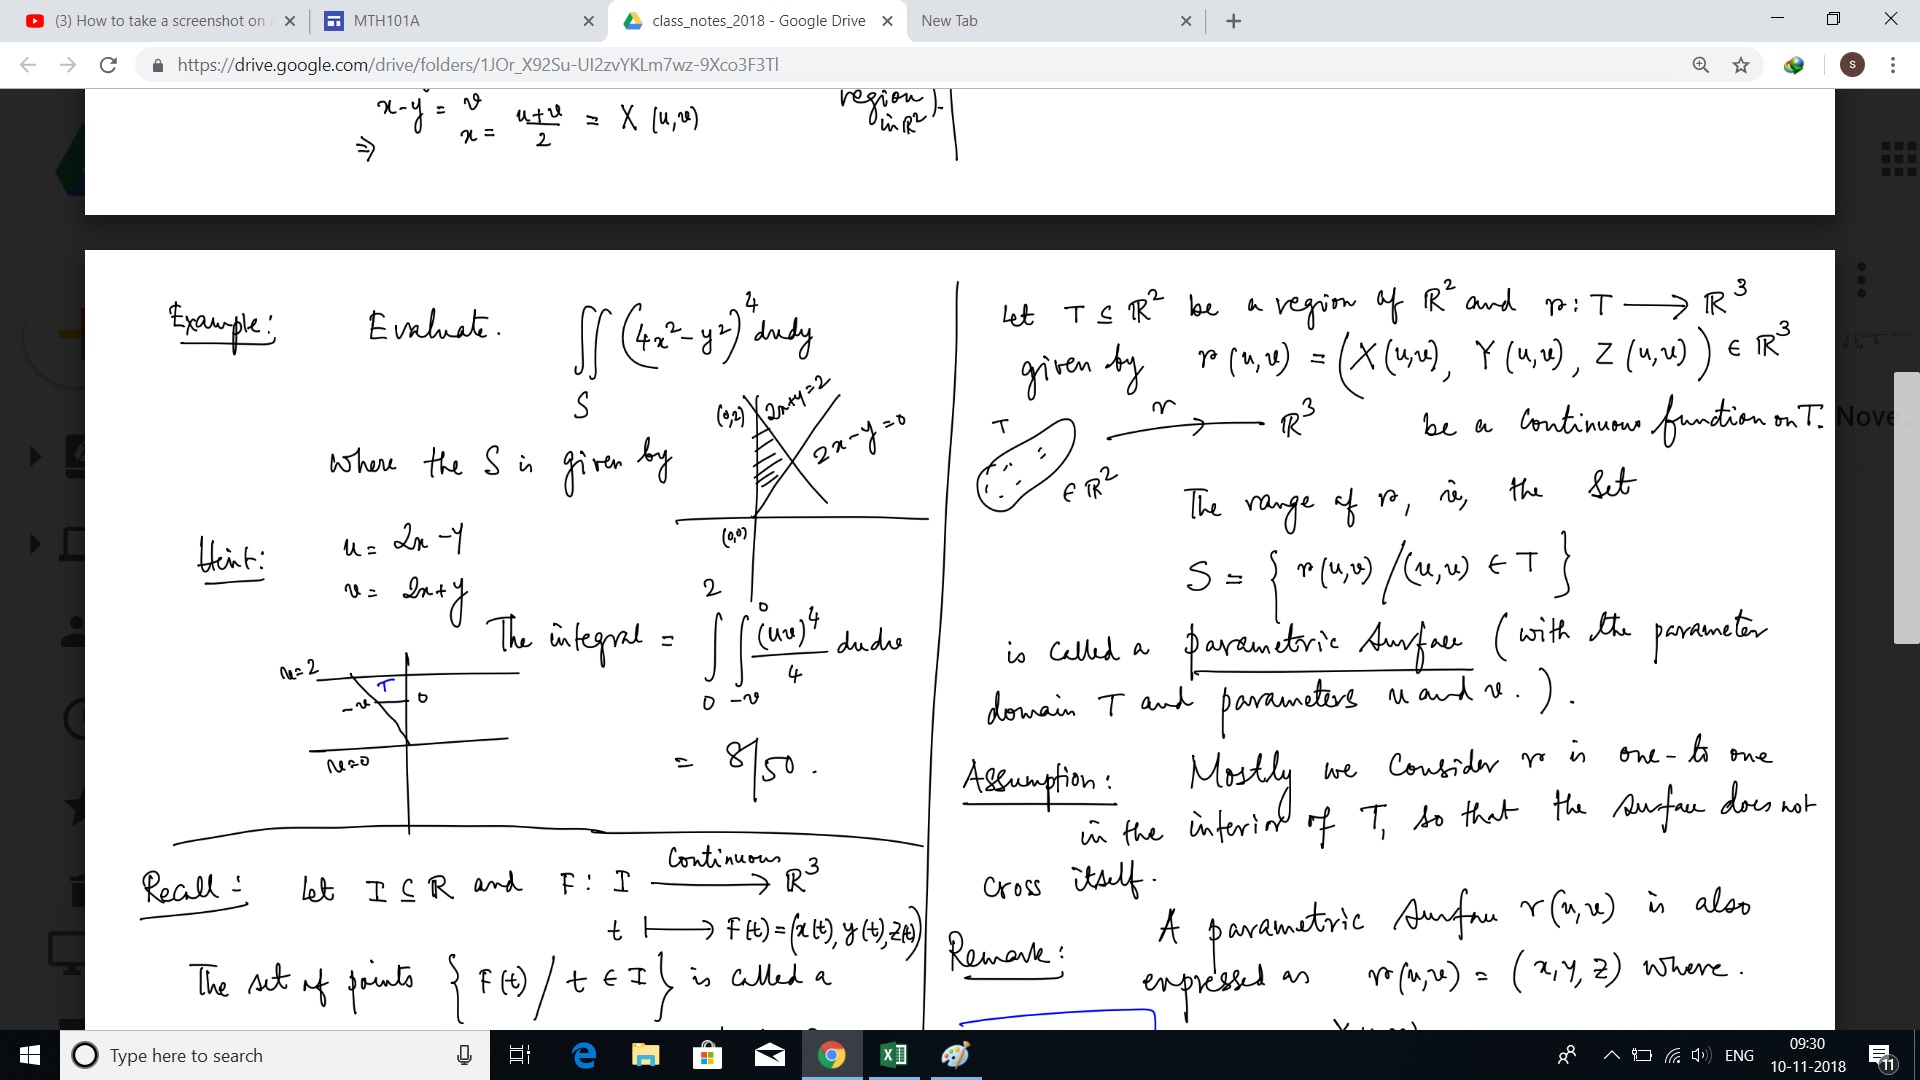 (3) How to take a screenshot on
MTH101A
class_notes_2018 - Google Drive
New Tab
https://drive.google.com/drive/folders/1JOr_X92Su-UI2zvYKLm7wz-9Xco3F3Tl
S
x-y = v
⇒ x = u+v/2 = X (u,v)
region
in ℝ²).
Example: Evaluate. ∬ (4x²-y²)⁴ dxdy
S
(0,2) 2x+y=2
2x-y=0
where the S is given by
(0,0)
Hint: u = 2x-y
v = 2x+y
The integral = ∫₀² ∫₋ᵥ⁰ (uv)⁴/4 dudv
v=2
T
-v 0
v=0
= 8/50.
Recall: Let I ⊆ ℝ and F: I continuous → ℝ³
t ↦ F(t) = (x(t), y(t), z(t))
The set of points { F(t) / t ∈ I } is called a
Let T ⊆ ℝ² be a region of ℝ² and r: T → ℝ³
given by r(u,v) = (X(u,v), Y(u,v), Z(u,v)) ∈ ℝ³
T r → ℝ³ be a continuous function on T.
∈ ℝ²
The range of r, ie, the set
S = { r(u,v) / (u,v) ∈ T }
is called a parametric surface (with the parameter
domain T and parameters u and v.).
Assumption: Mostly we consider r is one-to one
in the interior of T, so that the surface does not
cross itself.
Remark: A parametric surface r(u,v) is also
expressed as r(u,v) = (x,y,z) where.
Nove...
Type here to search
ENG
09:30
10-11-2018
11